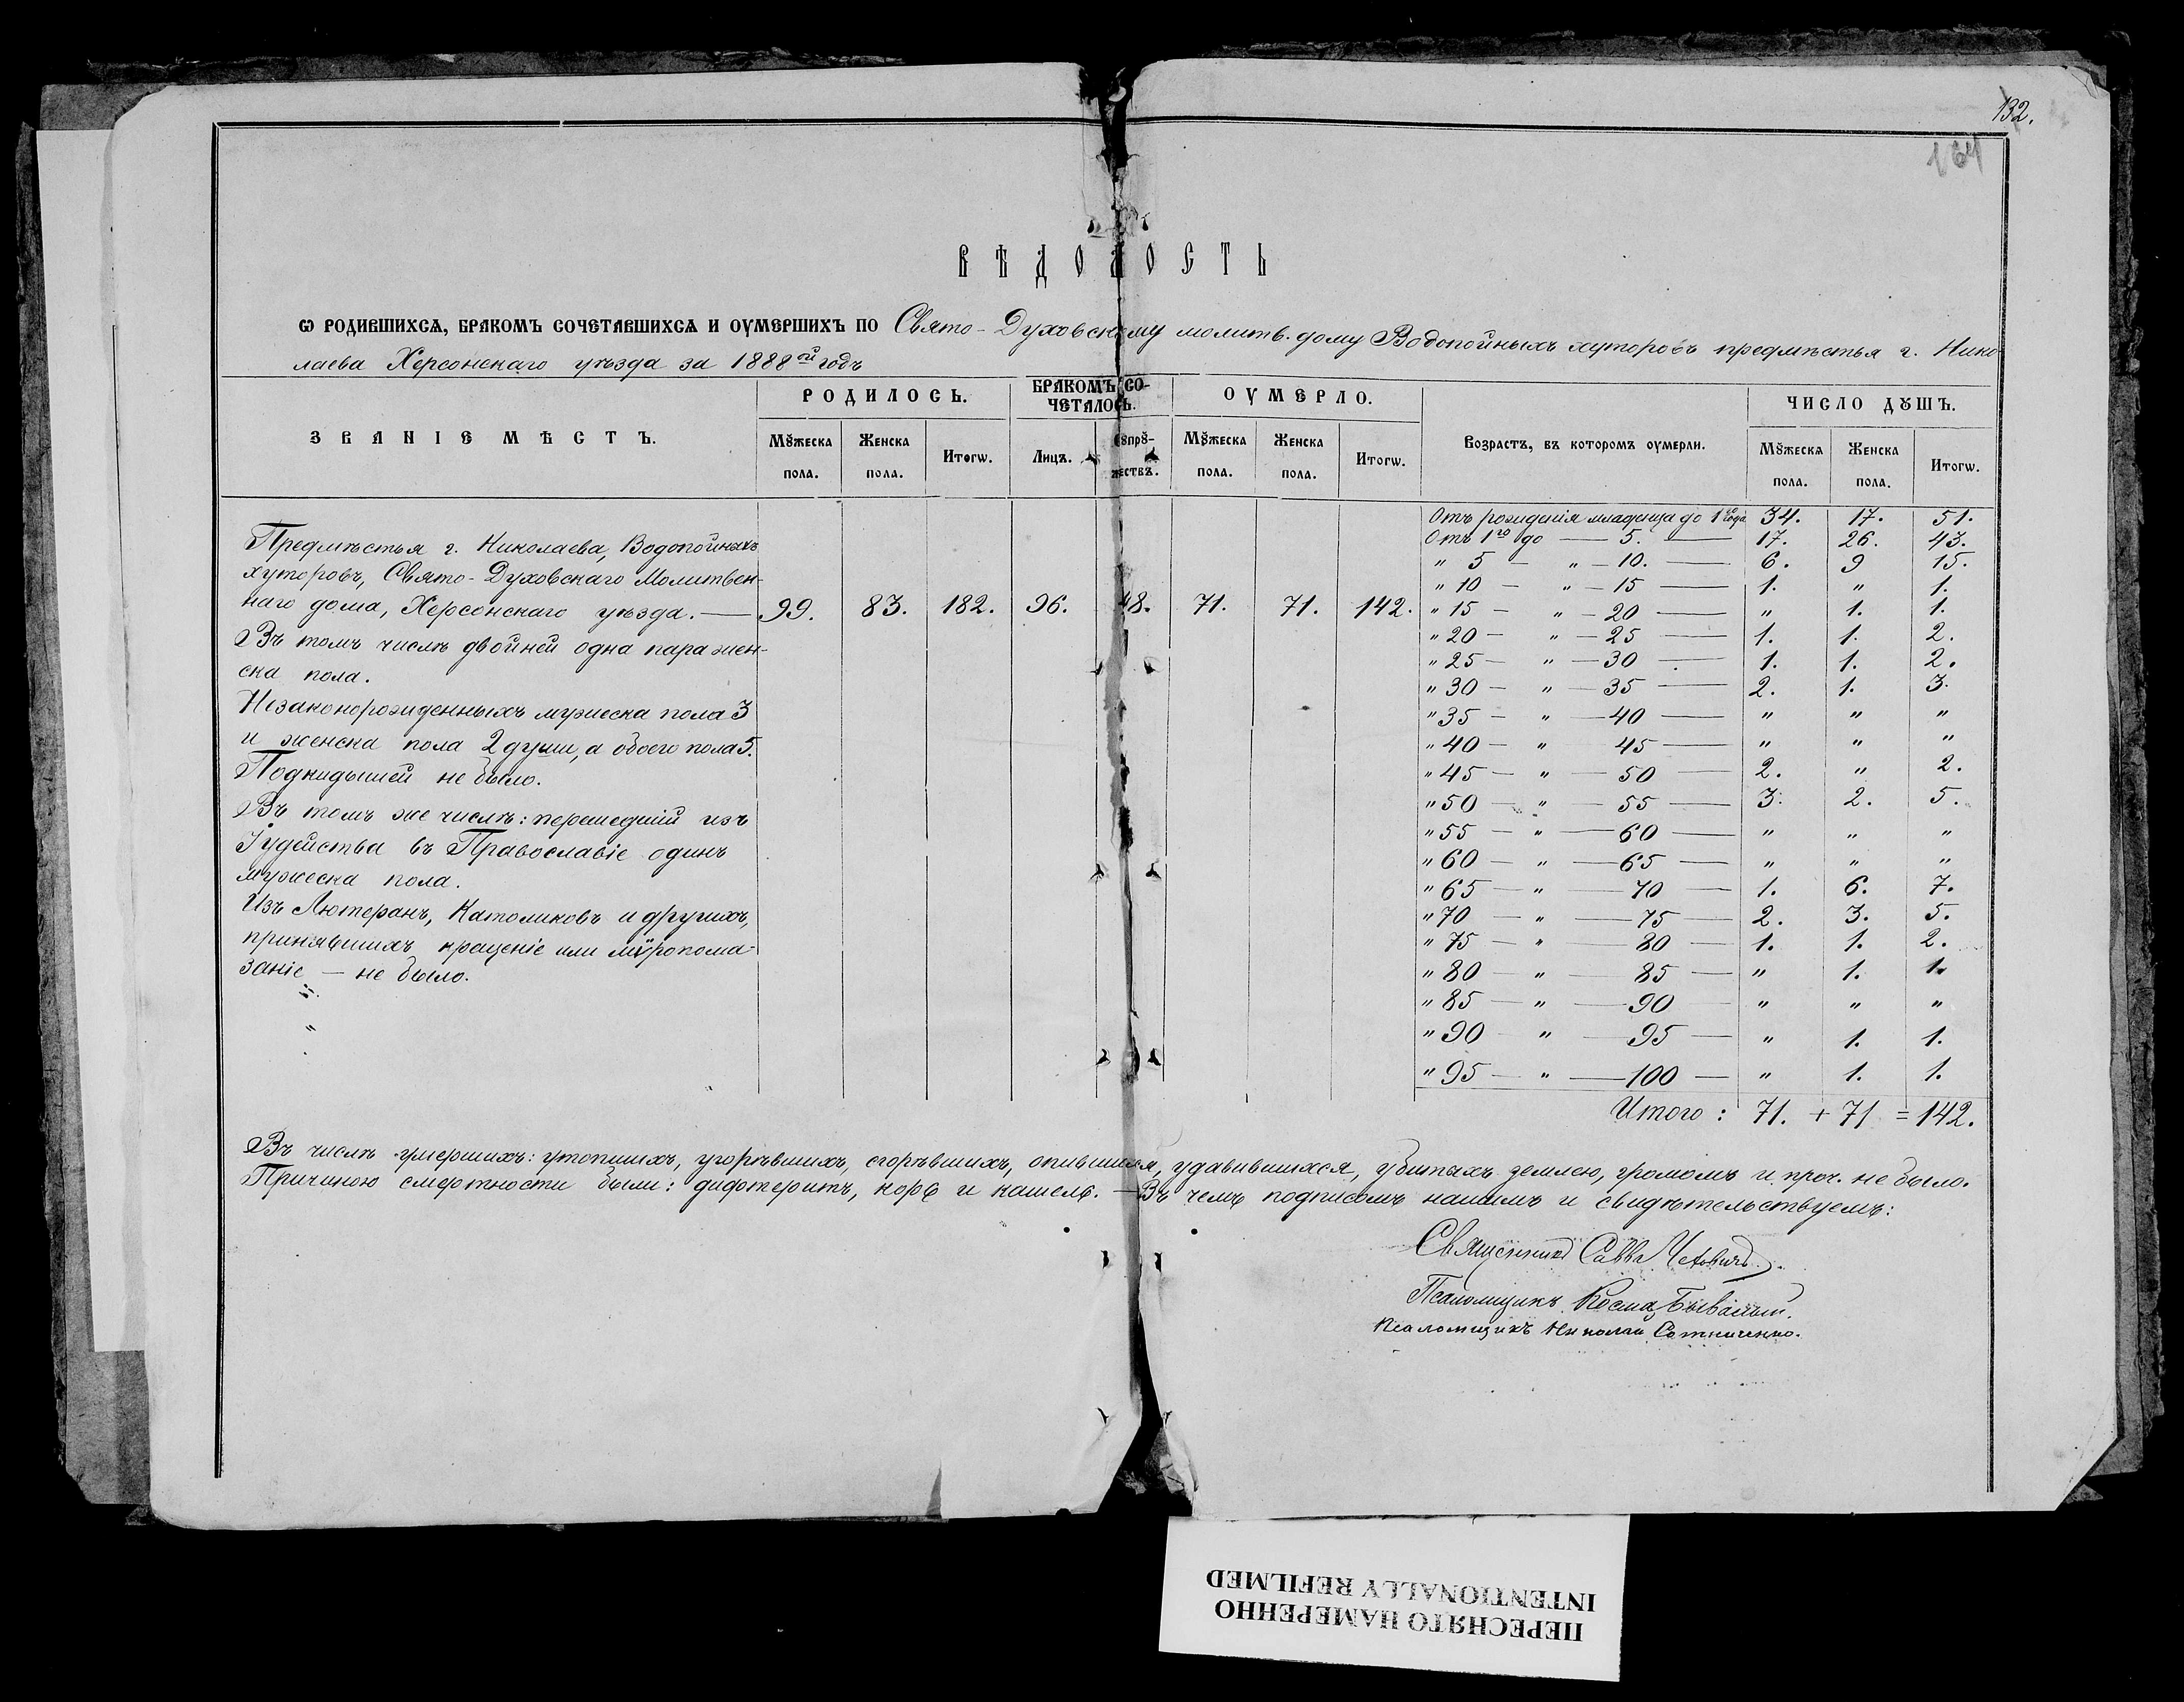 132.
164
ВѢДОМОСТЬ
Ѡ РОДИВШИХСѦ, БРАКОМЪ СОЧЕТАВШИХСѦ И ОУМЕРШИХЪ ПО Свято-Духовскому молитв. дому Водопойныхъ хуторовъ предмѣстья г. Нико-
лаева Херсонскаго уѣзда за 1888ой годъ
ЗВАНІЕ МѢСТЪ.
РОДИЛОСЬ.
БРАКОМЪ СО-
ЧЕТАЛОСЬ.
ОУМЕРЛО.
Возрастъ, въ которомъ оумерли.
ЧИСЛО ДꙊШЪ.
Мꙋжеска пола. Женска пола. Итогѡ. Лицъ. Сꙋпрꙋ-жествъ. Мꙋжеска пола. Женска пола. Итогѡ. Мꙋжеска пола. Женска пола. Итогѡ.
Предмѣстья г. Николаева, Водопойныхъ
хуторовъ, Свято-Духовскаго Молитвен-
наго дома, Херсонскаго уѣзда. — 99. 83. 182. 96. 48. 71. 71. 142.
Въ томъ числѣ двойней одна пара жен-
ска пола.
Незаконорожденныхъ мужеска пола 3
и женска пола 2 души, а обоего пола 5.
Подкидышей не было.
Въ томъ же числѣ: перешедшій изъ
Іудейства въ Православіе одинъ
мужеска пола.
Изъ Лютеранъ, Католиковъ и другихъ,
принявшихъ крещеніе или мѵропома-
заніе — не было.
Отъ рожденія младенца до 1го года 34. 17. 51.
Отъ 1го до — 5. — 17. 26. 43.
" 5 — " — 10. — 6. 9 15.
" 10 — " — 15 — 1. " 1.
" 15 — " — 20 — " 1. 1.
" 20 — " — 25 — 1. 1. 2.
" 25 — " — 30 — 1. 1. 2.
" 30 — " — 35 — 2. 1. 3.
" 35 — " — 40 — " " "
" 40 — " 45 — " " "
" 45 — " — 50 — 2. " 2.
" 50 — " — 55 — 3. 2. 5.
" 55 — " — 60 — " " "
" 60 — " — 65 — " " "
" 65 — " — 70 — 1. 6. 7.
" 70 — " — 75 — 2. 3. 5.
" 75 — " — 80 — 1. 1. 2.
" 80 — " — 85 — " 1. 1.
" 85 — " — 90 — " " "
" 90 — " — 95 — " 1. 1.
" 95 — " — 100 — " 1. 1.
Итого: 71. + 71 = 142.
Въ числѣ умершихъ: утопшихъ, угорѣвшихъ, сгорѣвшихъ, опившихся, удавившихся, убитыхъ землею, громомъ и проч. не было.
Причиною смертности были: дифтеритъ, корь и кашель. — Въ чемъ подписомъ нашимъ и свидѣтельствуемъ:
Священникъ Савва
Псаломщикъ Косма Бывалый.
Псаломщикъ Николай Сотниченко.
ПЕРЕСНЯТО НАМЕРЕННО
INTENTIONALLY REFILMED